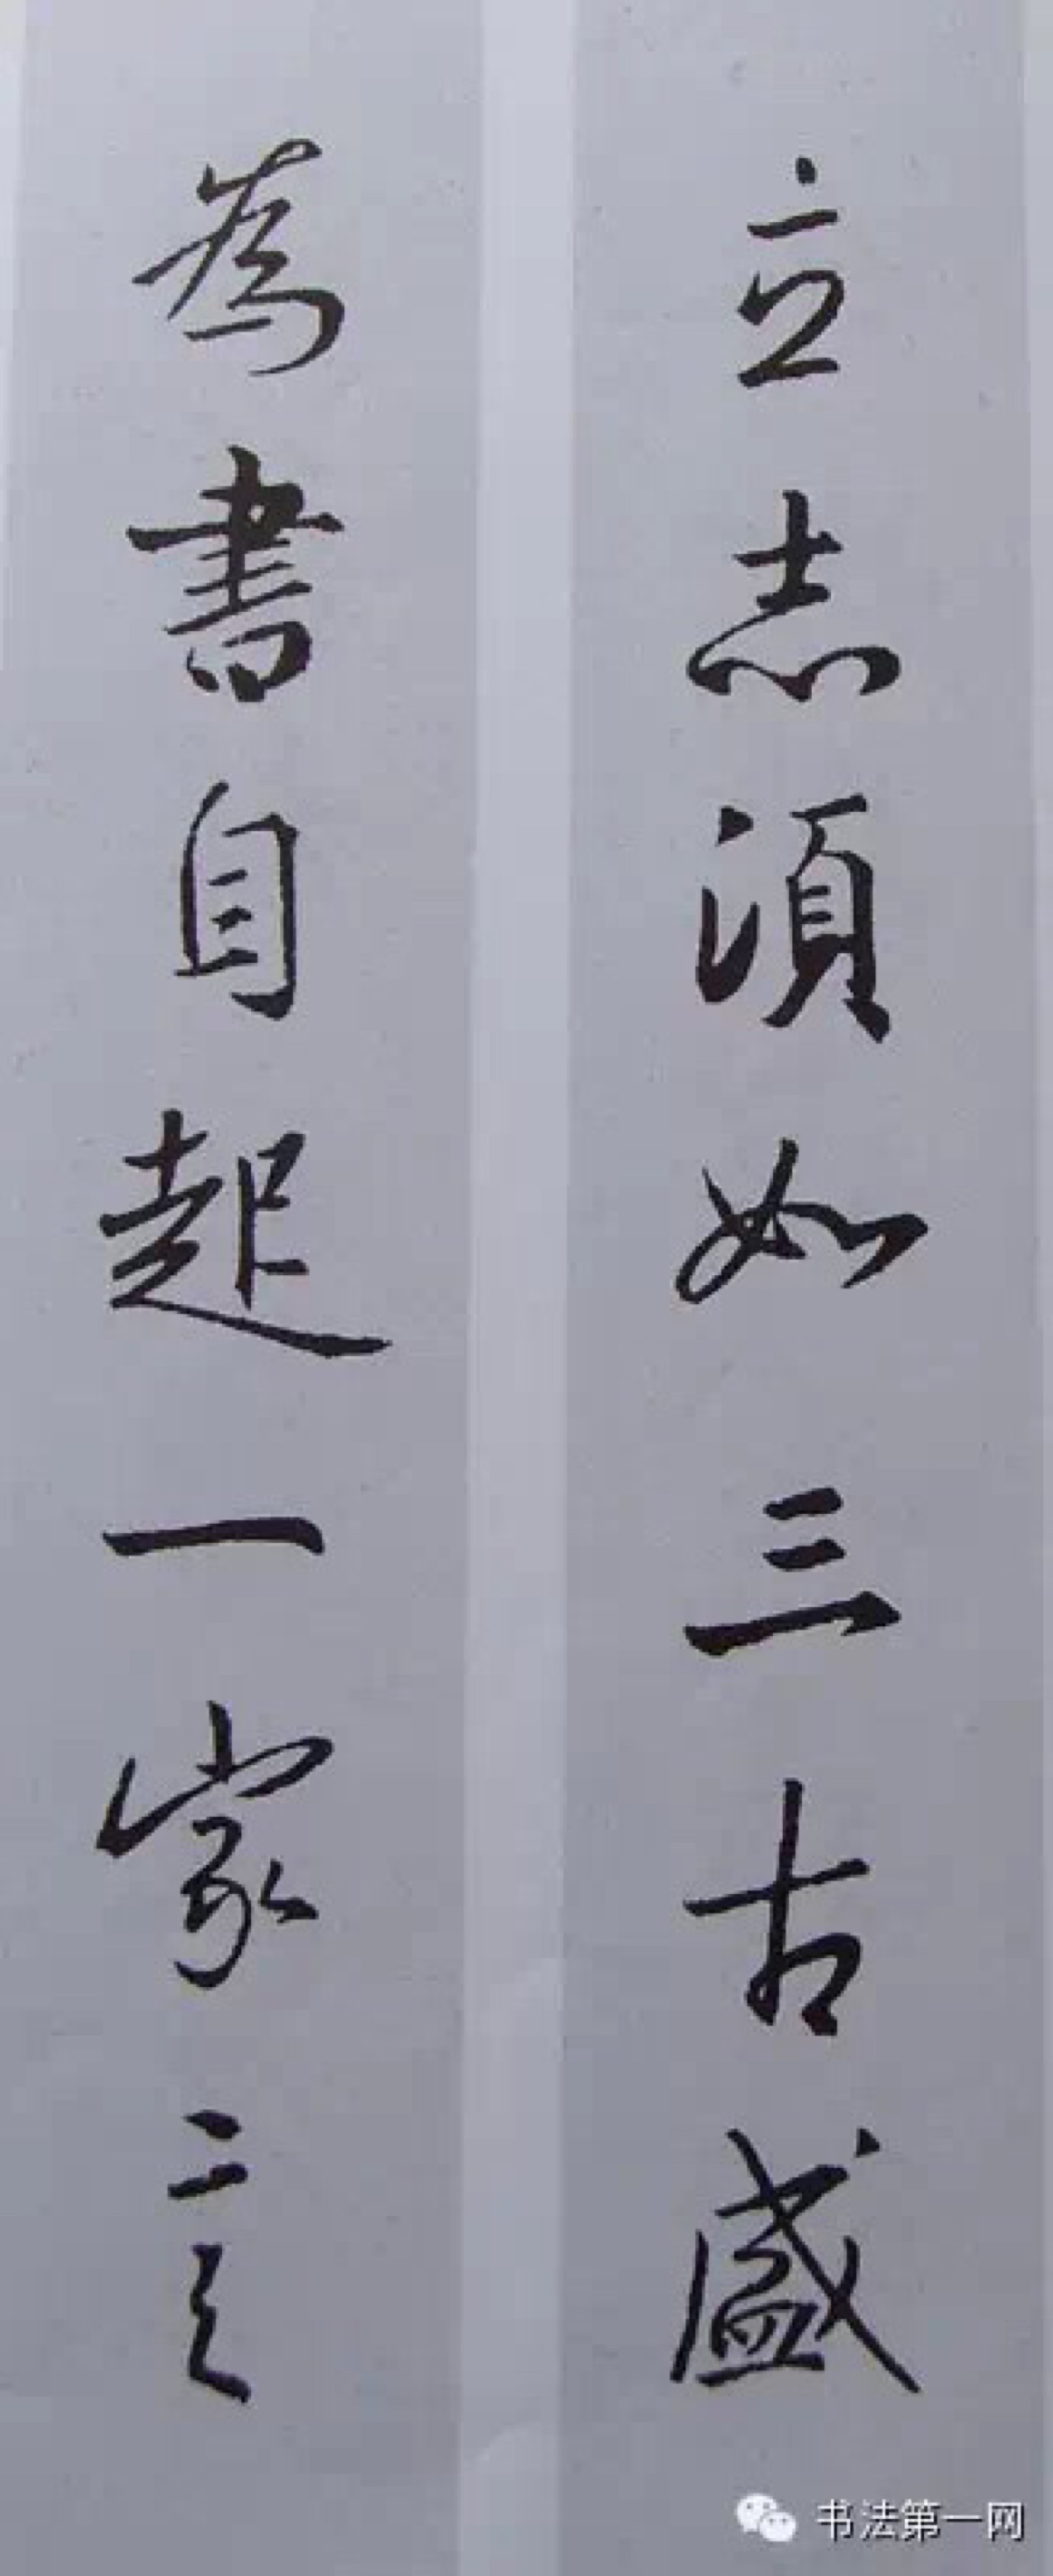 立志須如三古盛
為書自起一家言
书法第一网